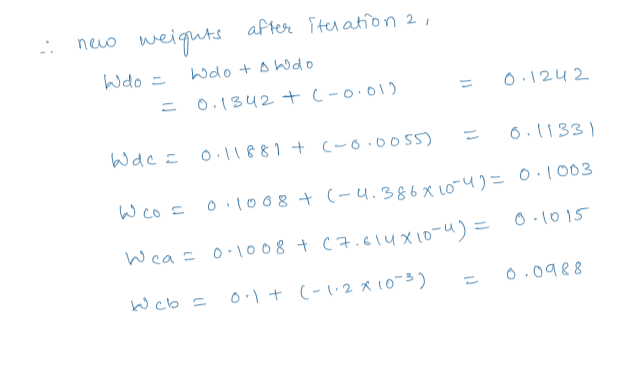 ∴ new weights after iteration 2,
Wdo = Wdo + ΔWdo
= 0.1342 + (-0.01) = 0.1242
Wdc = 0.11881 + (-0.0055) = 0.11331
Wco = 0.1008 + (-4.386 x 10-4) = 0.1003
Wca = 0.1008 + (7.614 x 10-4) = 0.1015
Wcb = 0.1 + (-1.2 x 10-3) = 0.0988